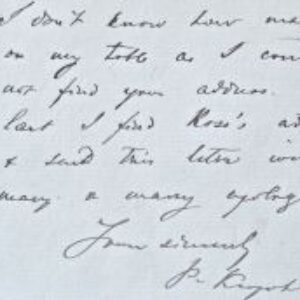 I don't know how ma
on my table as I con
not find your address.
last I find Rose's ad
& send this letter wi
many & many apolog
Yours sincerely
P. Kropot